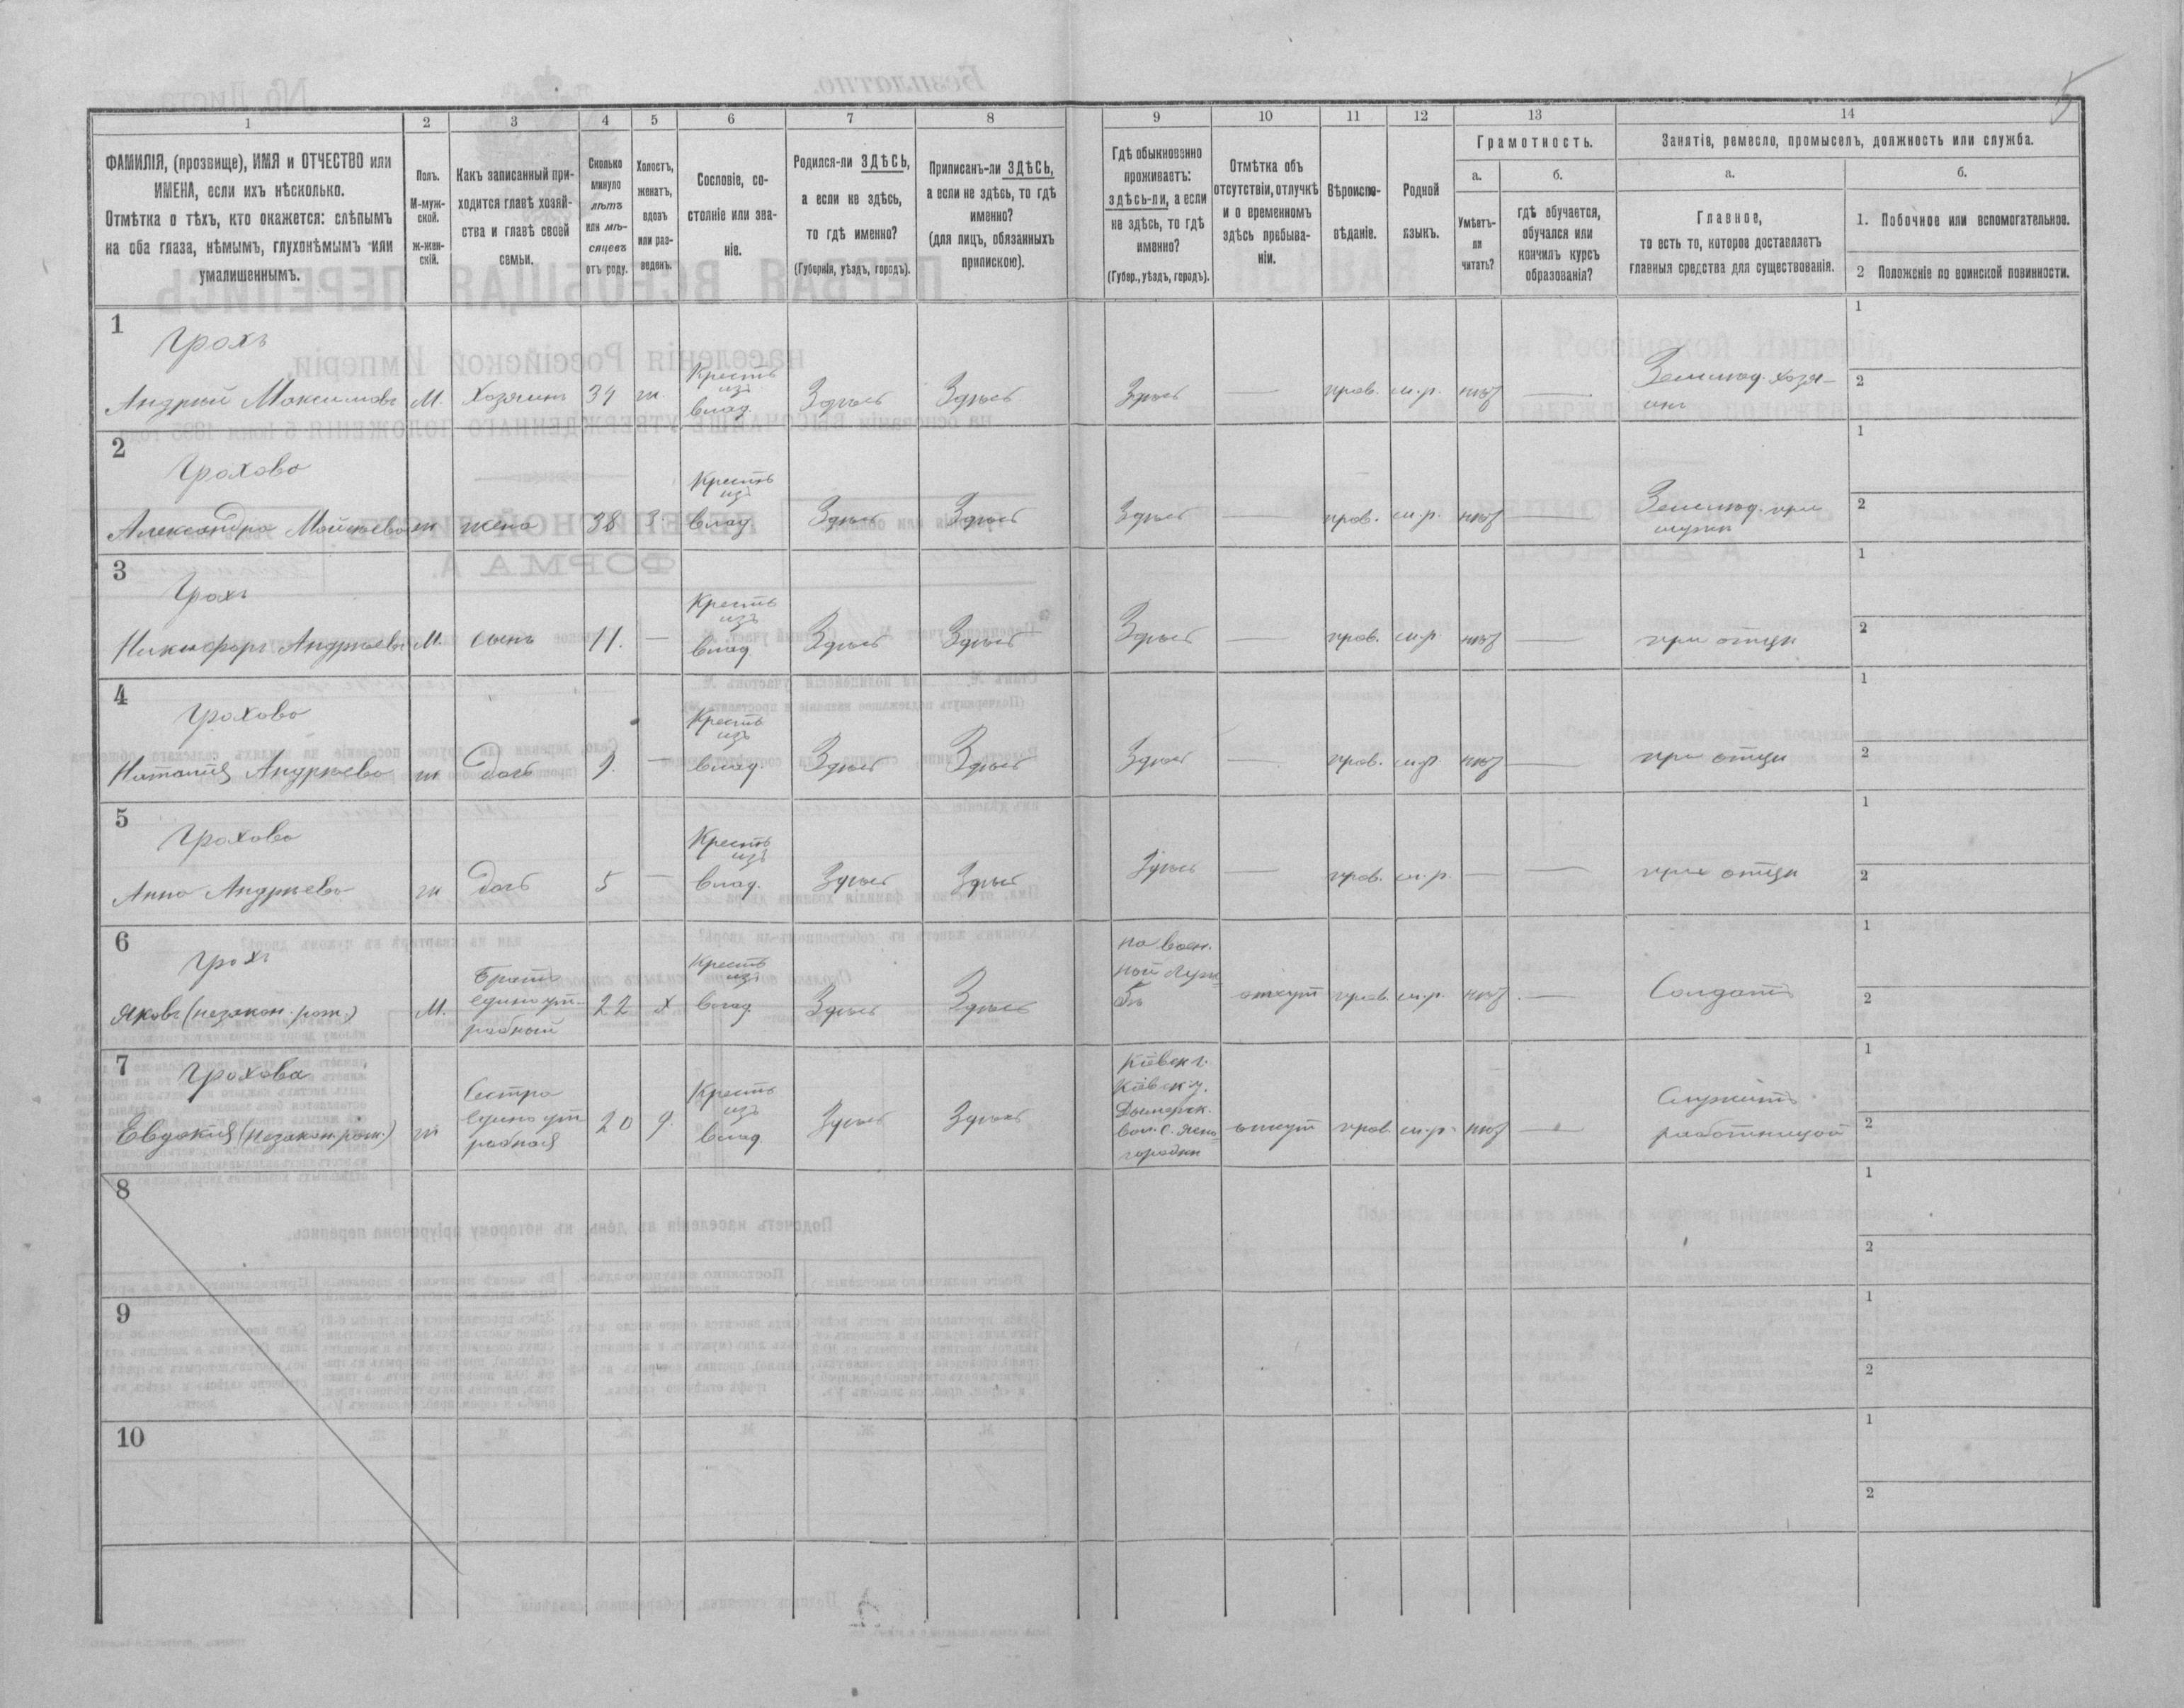 5
1 2 3 4 5 6 7 8 9 10 11 12 13 14
ФАМИЛІЯ, (прозвище), ИМЯ и ОТЧЕСТВО или
ИМЕНА, если ихъ нѣсколько.
Отмѣтка о тѣхъ, кто окажется: слѣпымъ
на оба глаза, нѣмымъ, глухонѣмымъ или
умалишеннымъ.
Полъ.
М-муж-
ской.
ж-жен-
скій.
Какъ записанный при-
ходится главѣ хозяй-
ства и главѣ своей
семьи.
Сколько
минуло
лѣтъ
или мѣ-
сяцевъ
отъ роду.
Холостъ,
женатъ,
вдовъ
или раз-
веденъ.
Сословіе, со-
стояніе или зва-
ніе.
Родился-ли ЗДѢСЬ,
а если не здѣсь,
то гдѣ именно?
(Губернія, уѣздъ, городъ).
Приписанъ-ли ЗДѢСЬ,
а если не здѣсь, то гдѣ
именно?
(для лицъ, обязанныхъ
припискою).
Гдѣ обыкновенно
проживаетъ:
здѣсь-ли, а если
не здѣсь, то гдѣ
именно?
(Губер., уѣздъ, городъ).
Отмѣтка объ
отсутствіи, отлучкѣ
и о временномъ
здѣсь пребыва-
ніи.
Вѣроиспо-
вѣданіе.
Родной
языкъ.
Грамотность.
а.
Умѣетъ-
ли
читать?
б.
гдѣ обучается,
обучался или
кончилъ курсъ
образованія?
Занятіе, ремесло, промыселъ, должность или служба.
а.
Главное,
то есть то, которое доставляетъ
главныя средства для существованія.
б.
1. Побочное или вспомогательное.
2 Положеніе по воинской повинности.
1
Грохъ
Андрей Максимовъ
М.
Хозяинъ
34
ж.
Крестъ
изъ
влад.
Здѣсь
Здѣсь
Здѣсь
—
прав.
м.р.
нѣт
—
Землед. хозя-
инъ
1
2
2
Грохова
Александра
ж
жена
38
З
Крестъ
изъ
влад
Здѣсь
Здѣсь
Здѣсь
—
прав.
м.р.
нѣт
—
Землед. при
мужѣ
1
2
3
Грохъ
Никифоръ Андреевъ
М.
сынъ
11.
—
Крестъ
изъ
влад
Здѣсь
Здѣсь
Здѣсь
—
прав.
м.р.
нѣт
—
при отцѣ
1
2
4
Грохова
Наталія Андреева
ж
дочь
9.
—
Крестъ
изъ
влад.
Здѣсь
Здѣсь
Здѣсь
—
прав.
м.р.
нѣт
—
при отцѣ
1
2
5
Грохова
Анна Андреева
ж
дочь
5
—
Крестъ
изъ
влад.
Здѣсь
Здѣсь
Здѣсь
—
прав.
м.р.
—
—
при отцѣ
1
2
6
Грохъ
Яковъ (незакон. рож.)
М.
Братъ
единоут-
робный
22
х
Крестъ
изъ
влад
Здѣсь
Здѣсь
на воен.
ной служ
бѣ
отсут
прав.
м.р.
нѣт
—
Солдатъ
1
2
7
Грохова
Евдокія (незакон. рож.)
ж
Сестра
единоут
робная
20
Крестъ
изъ
влад
Здѣсь
Здѣсь
Кіевск г.
Кіевск у.
Дымерск.
вол. с. Ясно
городки
отсут
прав
м.р.
нѣт
—
Служитъ
работницей
1
2
8
1
2
9
1
2
10
1
2